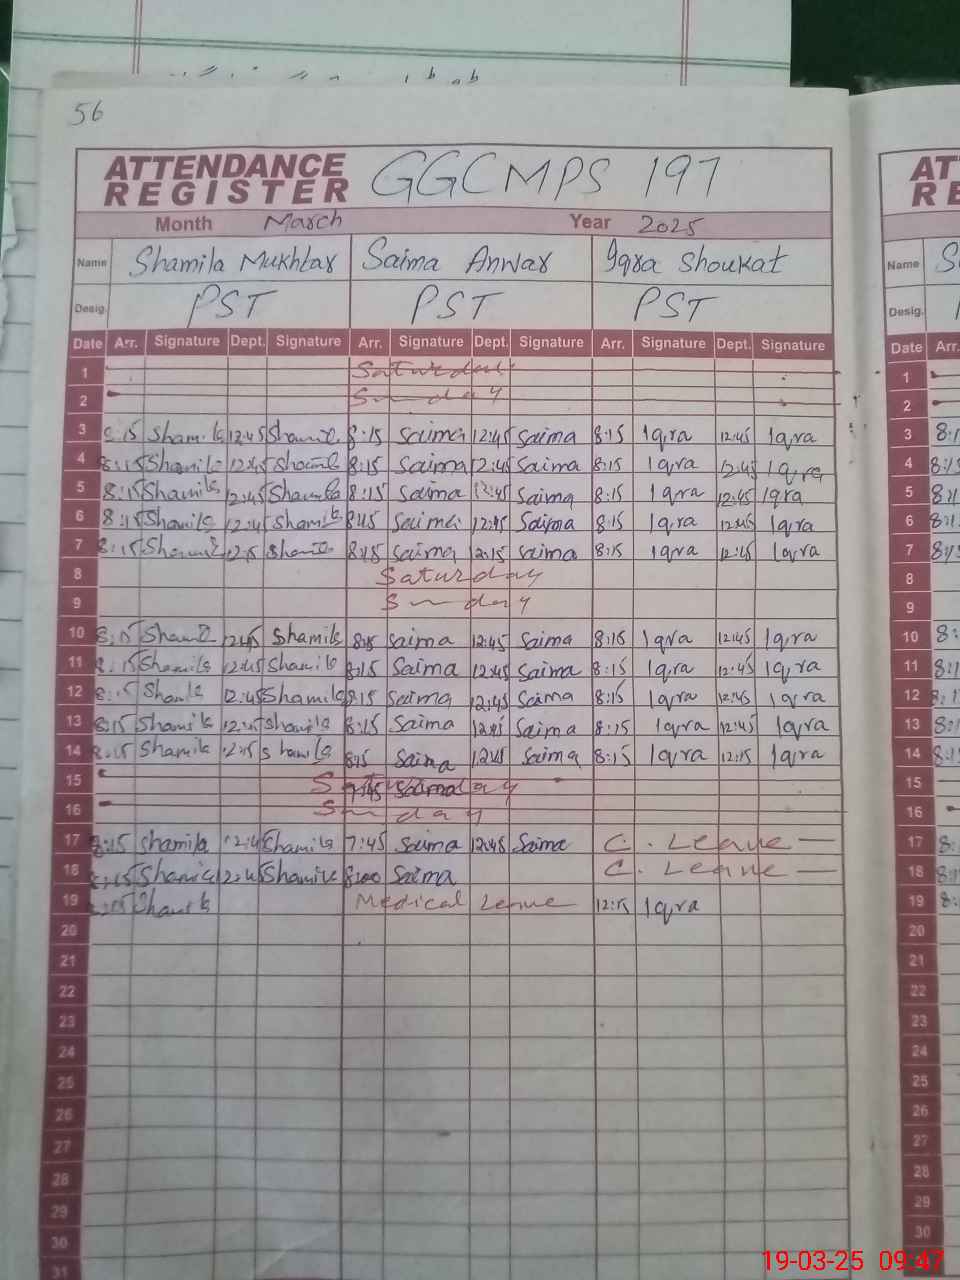 56
ATTENDANCE REGISTER GGCMPS 197
Month March Year 2025
Name Shamila Mukhtar Saima Anwar Iqra Shoukat
Desig. PST PST PST
Date Arr. Signature Dept. Signature Arr. Signature Dept. Signature Arr. Signature Dept. Signature
1 Saturday
2 Sunday
3 8:15 Shamila 12:45 Shamila 8:15 Saima 12:45 Saima 8:15 Iqra 12:45 Iqra
4 8:15 Shamila 12:45 Shamila 8:15 Saima 12:45 Saima 8:15 Iqra 12:45 Iqra
5 8:15 Shamila 12:45 Shamila 8:15 Saima 12:45 Saima 8:15 Iqra 12:45 Iqra
6 8:15 Shamila 12:45 Shamila 8:15 Saima 12:45 Saima 8:15 Iqra 12:45 Iqra
7 8:15 Shamila 12:15 Shamila 8:15 Saima 12:15 Saima 8:15 Iqra 12:45 Iqra
8 Saturday
9 Sunday
10 8:15 Shamila 12:45 Shamila 8:15 Saima 12:45 Saima 8:15 Iqra 12:45 Iqra
11 8:15 Shamila 12:45 Shamila 8:15 Saima 12:45 Saima 8:15 Iqra 12:45 Iqra
12 8:15 Shamila 12:45 Shamila 8:15 Saima 12:45 Saima 8:15 Iqra 12:45 Iqra
13 8:15 Shamila 12:45 Shamila 8:15 Saima 12:45 Saima 8:15 Iqra 12:45 Iqra
14 8:15 Shamila 12:15 Shamila 8:15 Saima 12:45 Saima 8:15 Iqra 12:15 Iqra
15 Saturday 7:45 Saima
16 Sunday
17 8:15 Shamila 12:45 Shamila 7:45 Saima 12:45 Saima C. Leave
18 8:15 Shamila 12:45 Shamila 8:00 Saima C. Leave
19 8:15 Shamila Medical Leave 12:15 Iqra
20
21
22
23
24
25
26
27
28
29
30
31
Name
Desig.
Date Arr.
1
2
3
4
5
6
7
8
9
10
11
12
13
14
15
16
17
18
19
20
21
22
23
24
25
26
27
28
29
30
19-03-25 09:47